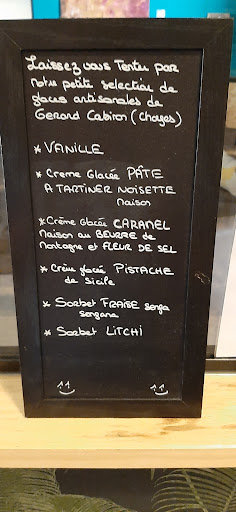 Laissez vous Tenter par
notre petite selection de
glaces artisanales de
Gerard Cabiron (Choyes)
* VANILLE
* Creme Glacée PÂTE
A TARTINER NOISETTE
maison
* Crème Glacée CARAMEL
maison au BEURRE de
montagne et FLEUR DE SEL
* Crème glacée PISTACHE
de Sicile
* Sorbet FRAISE senga
sengana
* Sorbet LITCHI